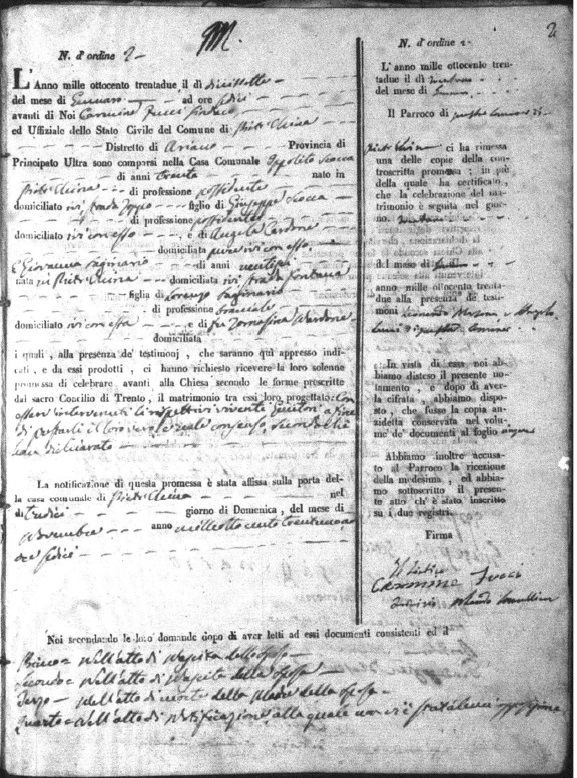 M.
2
N. d'ordine 2
L'Anno mille ottocento trentadue il dì diciotto
del mese di Gennaro ad ore sedici
avanti di Noi Carmine Fucci Sindaco
ed Uffiziale dello Stato Civile del Comune di Pietr'Elcina
Distretto di Ariano Provincia di
Principato Ultra sono comparsi nella Casa Comunale Ippolito Iocca
di anni trenta nato in
Pietr'Elcina di professione possidente
domiciliato ivi strada figlio di Giuseppe Iocca
di professione possidente
domiciliato ivi con esso e di Angela Cardone
domiciliata pure ivi con esso
E Giovanna Saginario di anni
nata in Pietr'Elcina domiciliata ivi strada Fontana
figlia di Lorenzo Saginario
di professione bracciale
domiciliato ivi con essa e di fu Tomasina Cardone
domiciliata
i quali, alla presenza de' testimonj, che saranno quì appresso indi-
cati, e da essi prodotti, ci hanno richiesto ricevere la loro solenne
promessa di celebrare avanti alla Chiesa secondo le forme prescritte
dal sacro Concilio di Trento, il matrimonio tra essi loro progettato; con
esservi intervenuti i rispettivi viventi Genitori a fine
di prestarli il loro verbale consenso, secondochè
han dichiarato
La notificazione di questa promessa è stata affissa sulla porta del-
la casa comunale di Pietr'Elcina nel
dì tredici giorno di Domenica, del mese di
Novembre anno mille ottocento trentuno
ore sedici
N. d'ordine 2
L'anno mille ottocento tren-
tadue il dì
del mese di
Il Parroco di
Pietr'Elcina ci ha rimessa
una delle copie della con-
troscritta promessa; in piè
della quale ha certificato,
che la celebrazione del ma-
trimonio è seguita nel gior-
no
del mese di
anno mille ottocento trenta-
due alla presenza de' testi-
monj
In vista di essa noi ab-
biamo disteso il presente no-
tamento, e dopo di aver-
la cifrata, abbiamo dispo-
sto, che fusse la copia an-
zidetta conservata nel volu-
me de' documenti al foglio cinque
Abbiamo inoltre accusa-
to al Parroco la ricezione
della medesima, ed abbia-
mo sottoscritto il presen-
te atto ch'è stato inscritto
su i due registri.
Firma
Il Sindaco
Carmine Fucci
Noi secondando le loro domande dopo di aver letti ad essi documenti consistenti ed il
Primo = Nell'atto di Nascita dello Sposo
Secondo = Nell'atto di Nascita della Sposa
Terzo = Nell'atto di morte della Madre della Sposa
Quarto = Nell'atto di Notificazione, alla quale non vi è stata alcuna opposizione